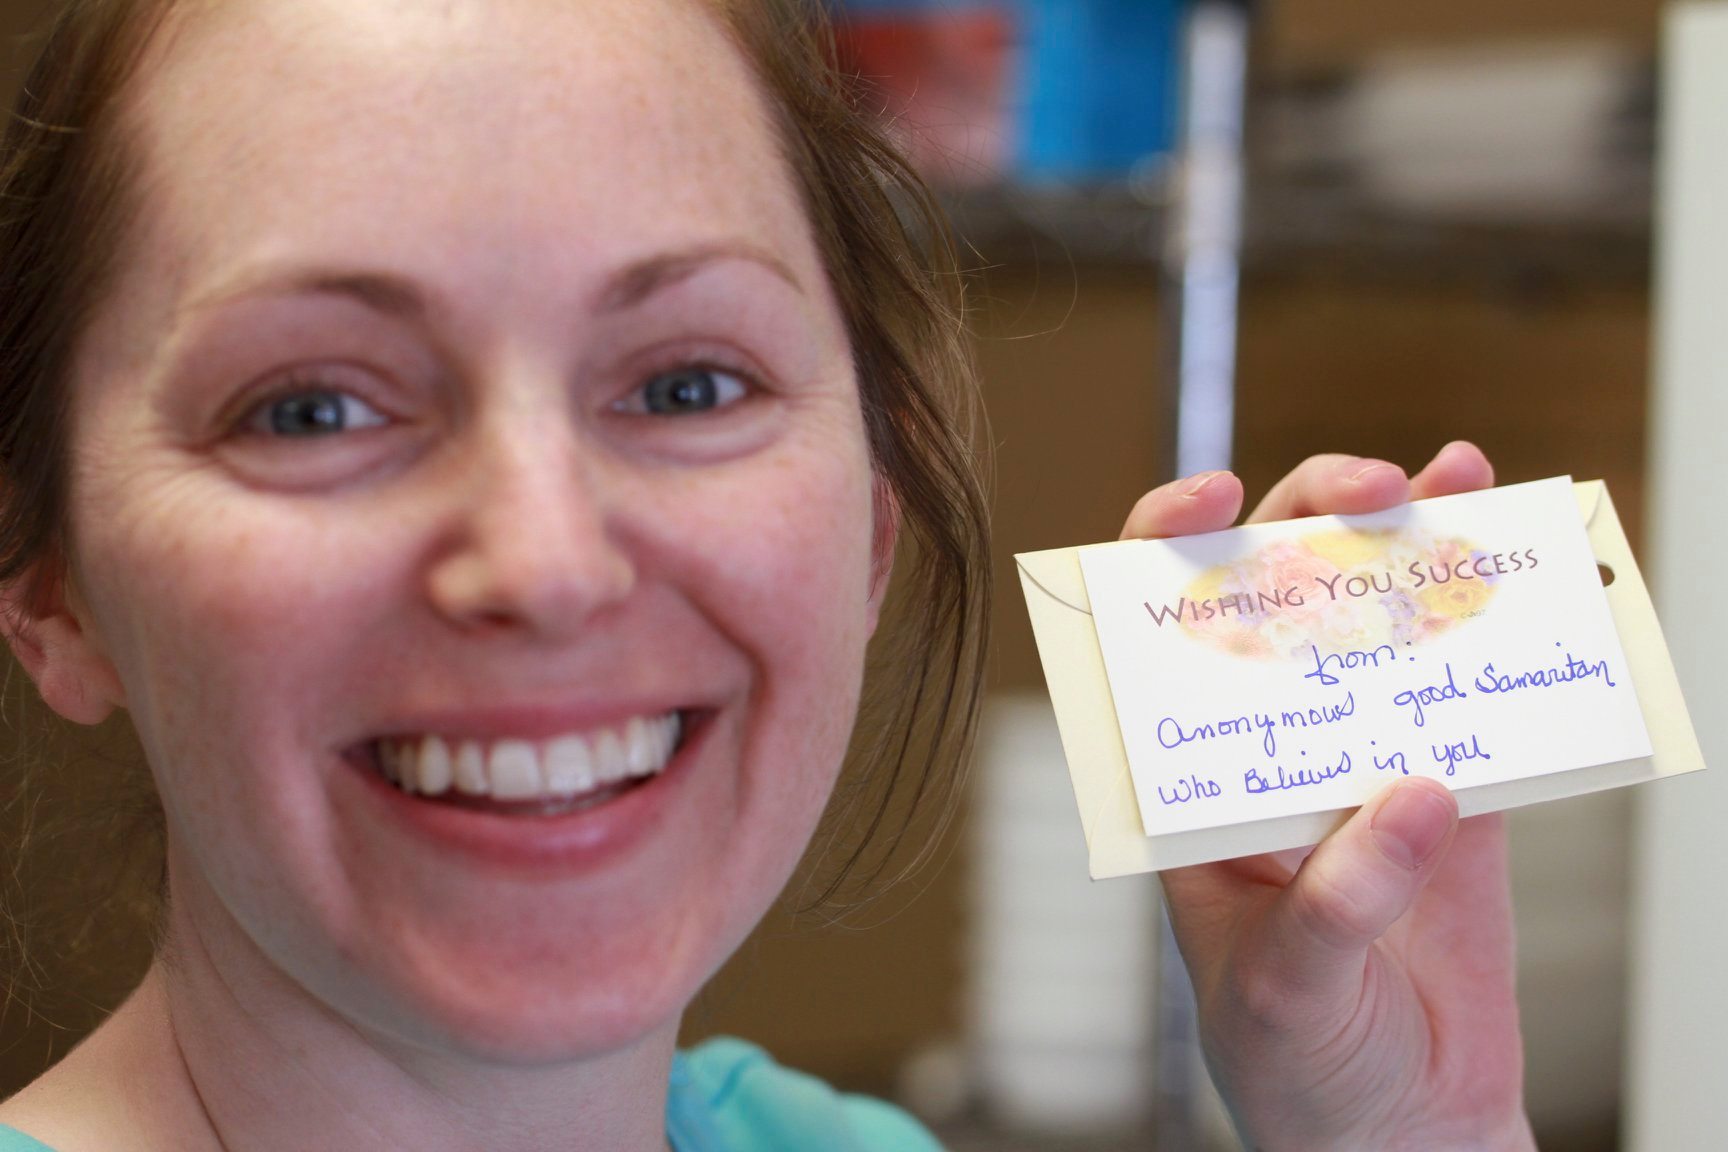 WISHING YOU SUCCESS
from:
Anonymous good Samaritan
who Believes in you